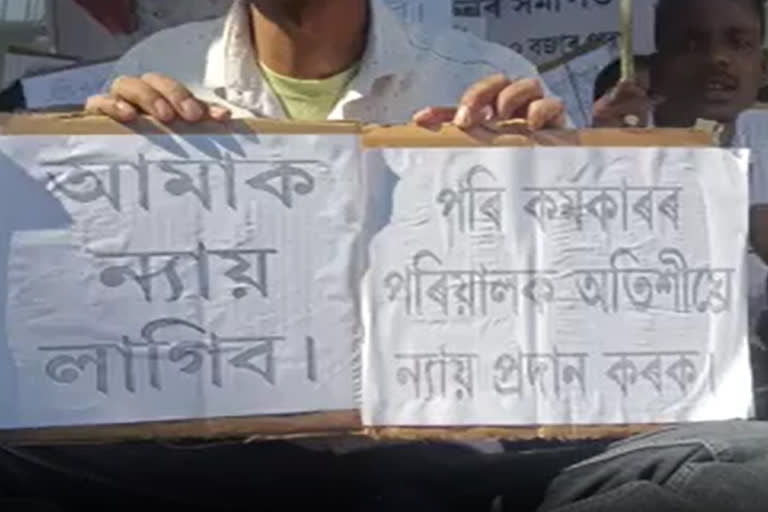 আমাক
ন্যায়
লাগিব।
পৰি কৰ্মকাৰৰ
পৰিয়ালক অতিশীঘ্ৰে
ন্যায় প্ৰদান কৰক।